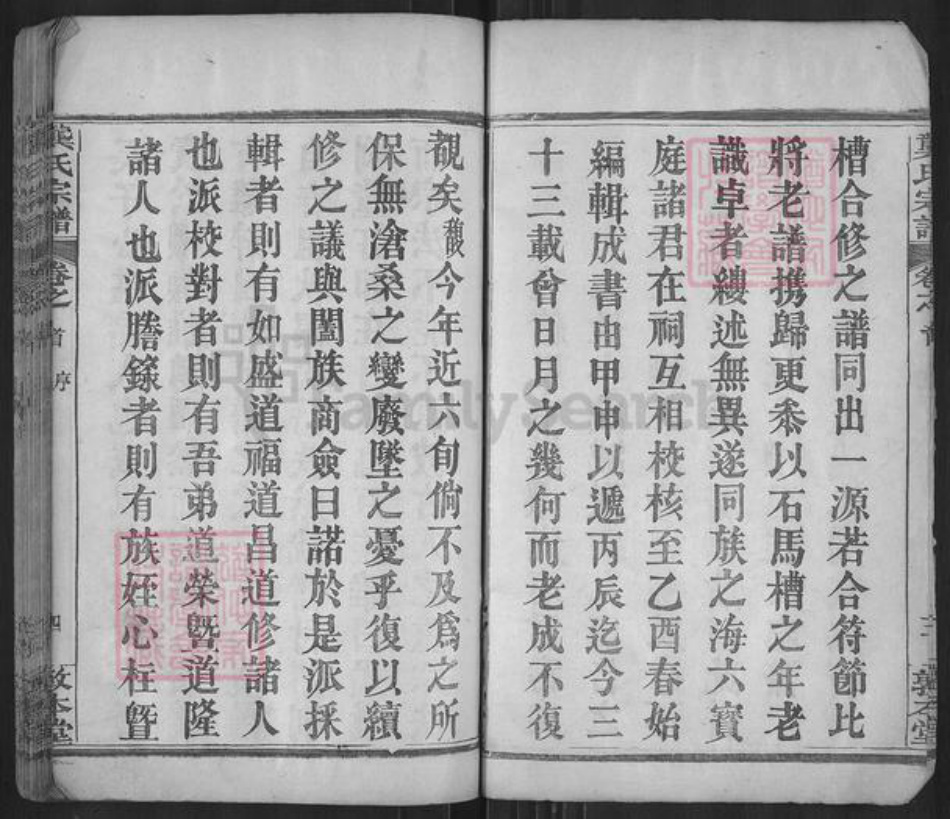 槽合修之譜同出一源若合符節比
將老譜携歸更叅以石馬槽之年老
識卓者縷述無異遂同族之海六寳
庭諸君在祠互相校核至乙酉春始
編輯成書由甲申以遞丙辰迄今三
十三載曾日月之幾何而老成不復
覩矣馥今年近六旬倘不及爲之所
保無滄桑之變廢墜之憂乎復以續
修之議與闔族商僉曰諾於是派採
輯者則有如盛道福道昌道修諸人
也派校對者則有吾弟道榮曁道隆
諸人也派謄錄者則有族姪心柱曁
龔氏宗譜
卷之首
序
四
敦本堂
FamilySearch